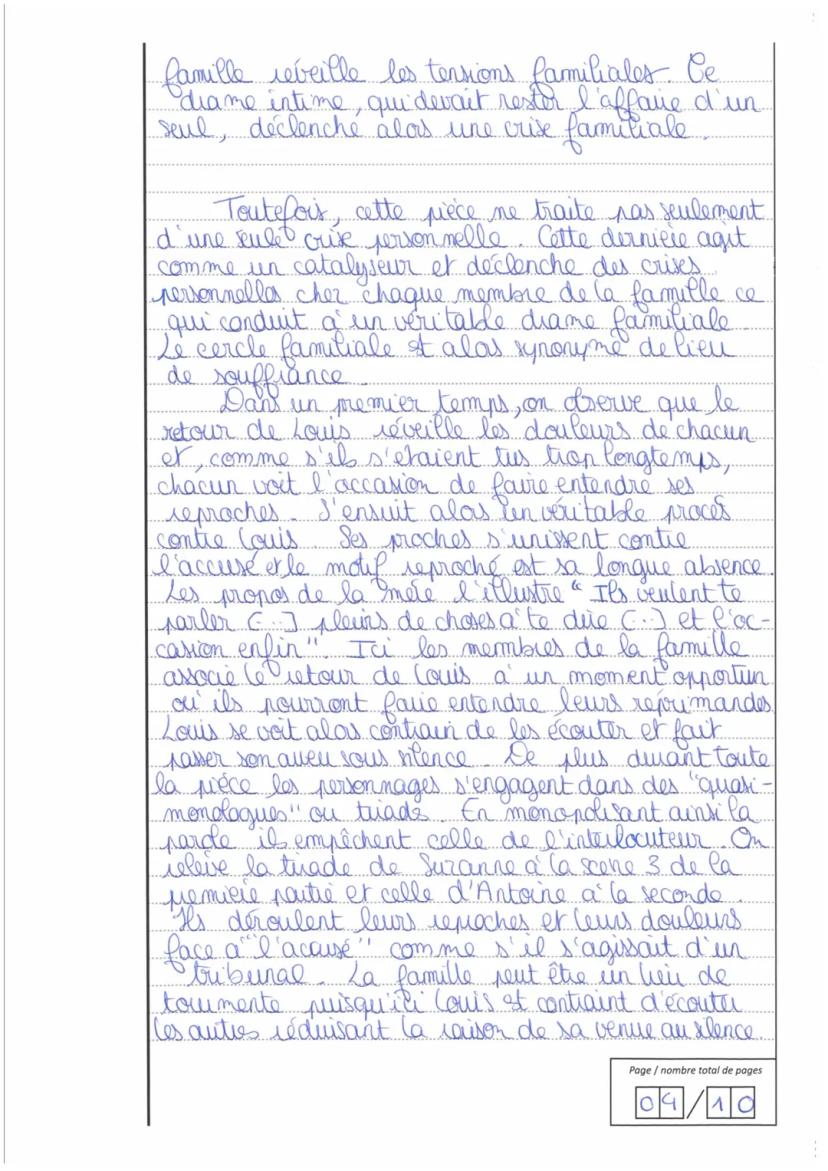 famille réveille les tensions familiales. Ce
drame intime, qui devait rester l'affaire d'un
seul, déclenche alors une crise familiale.
Toutefois, cette pièce ne traite pas seulement
d'une seule crise personnelle. Cette dernière agit
comme un catalyseur et déclenche des crises
personnelles chez chaque membre de la famille ce
qui conduit à un véritable drame familiale.
Le cercle familiale est alors synonyme de lieu
de souffrance.
Dans un premier temps, on observe que le
retour de Louis réveille les douleurs de chacun
et, comme s'ils s'étaient tus trop longtemps,
chacun voit l'occasion de faire entendre ses
reproches. S'ensuit alors un véritable procès
contre Louis. Ses proches s'unissent contre
l'accusé et le motif reproché est sa longue absence.
Les propos de la mère l'illustre " Ils veulent te
parler (...] pleins de choses à te dire (...) et l'oc-
casion enfin". Ici les membres de la famille
associe le retour de Louis à un moment opportun
où ils pourront faire entendre leurs réprimandes.
Louis se voit alors contraint de les écouter et fait
passer son aveu sous silence. De plus durant toute
la pièce les personnages s'engagent dans des "quasi-
monologues" ou tirade. En monopolisant ainsi la
parole ils empêchent celle de l'interlocuteur. On
relève la tirade de Suzanne à la scène 3 de la
première partie et celle d'Antoine à la seconde.
Ils déroulent leurs reproches et leurs douleurs
face à "l'acausé" comme s'il s'agissait d'un
tribunal. La famille peut être un lieu de
tourmente puisqu'ici Louis est contraint d'écouter
les autres réduisant la raison de sa venue au silence.
Page / nombre total de pages
04/10